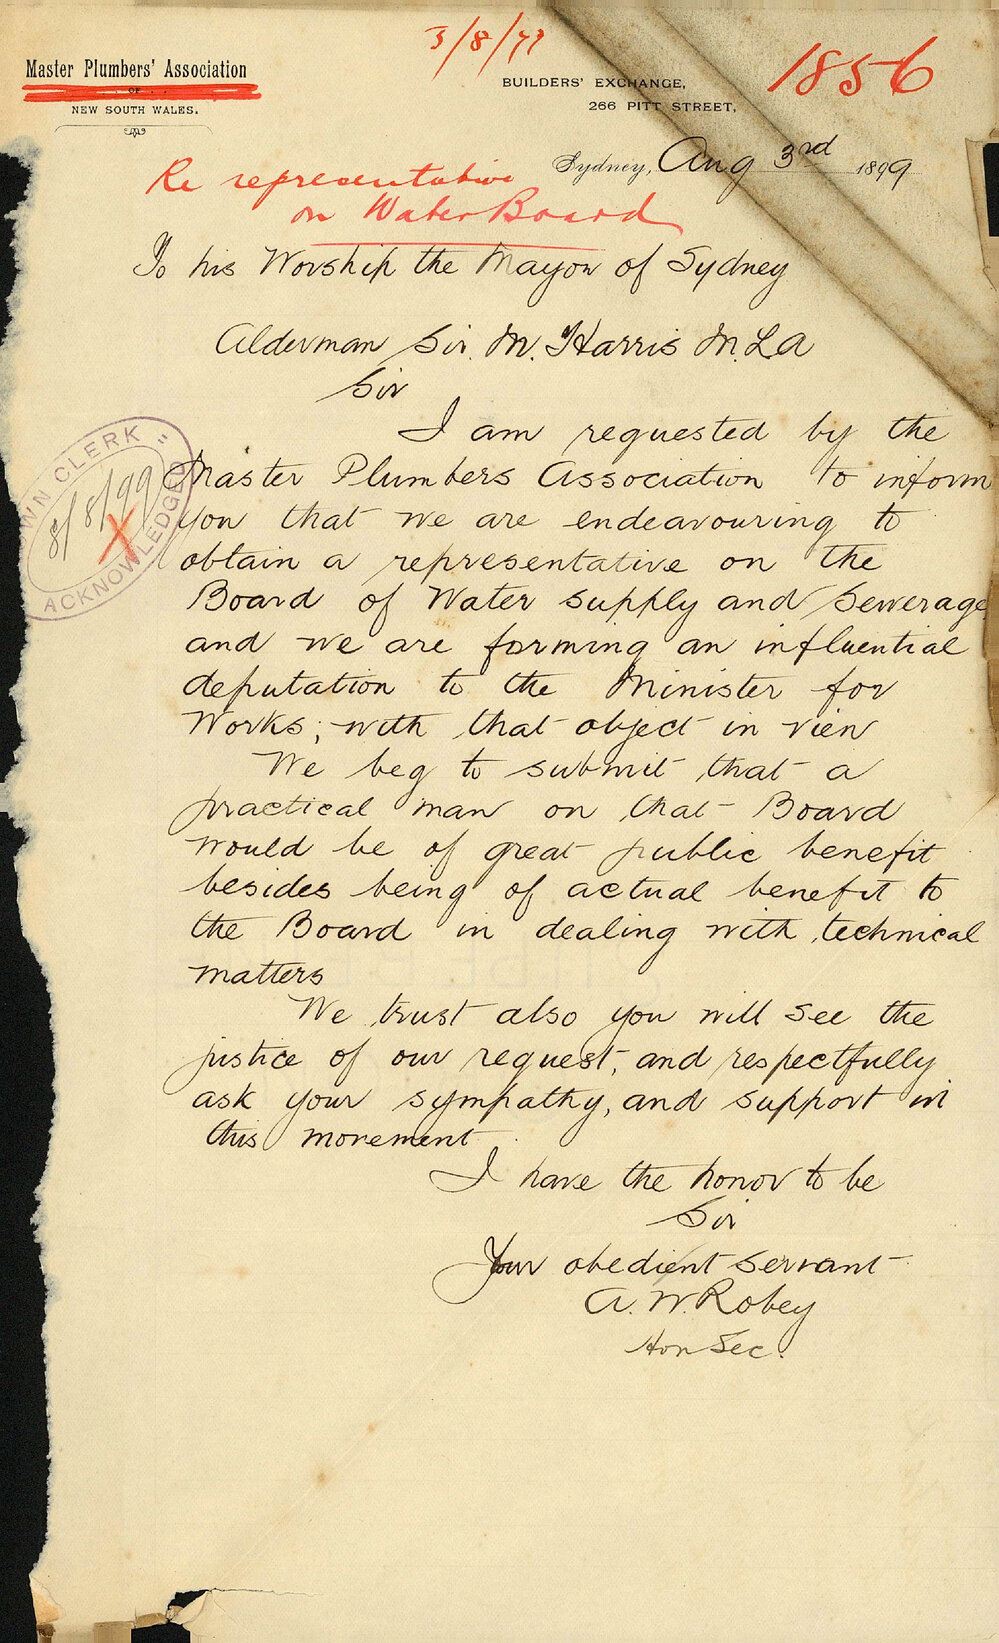 3/8/99
1856
Master Plumbers' Association
OF
NEW SOUTH WALES.
BUILDERS' EXCHANGE,
266 PITT STREET,
Sydney, Aug 3rd 1899
Re representative
on Water Board
To his Worship the Mayor of Sydney
Alderman Sir. M. Harris M.L.A
Sir
I am requested by the
Master Plumbers Association to inform
you that we are endeavouring to
obtain a representative on the
Board of Water supply and Sewerage
and we are forming an influential
deputation to the Minister for
Works; with that object in view
We beg to submit that a
practical man on that Board
would be of great public benefit
besides being of actual benefit to
the Board in dealing with technical
matters
We trust also you will see the
justice of our request, and respectfully
ask your sympathy, and support in
this movement
I have the honor to be
Sir
Your obedient servant
A. W. Robey
Hon Sec.
TOWN CLERK
8/8/99
X
ACKNOWLEDGED